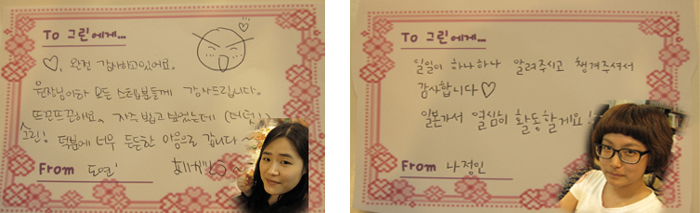 To 그린에게...
♡, 완전 감사하고있어요.
원장님이랑 모든 스텝분들께 감사드립니다.
뜨끈뜨끈해요. 자주 뵙고 싶었는데
그린! 덕분에 너무 든든한 마음으로 갑니다~
From 도연
To 그린에게...
일일이 하나하나 알려주시고 챙겨주셔서
감사합니다♡
일본가서 열심히 활동할게요
From 나정인